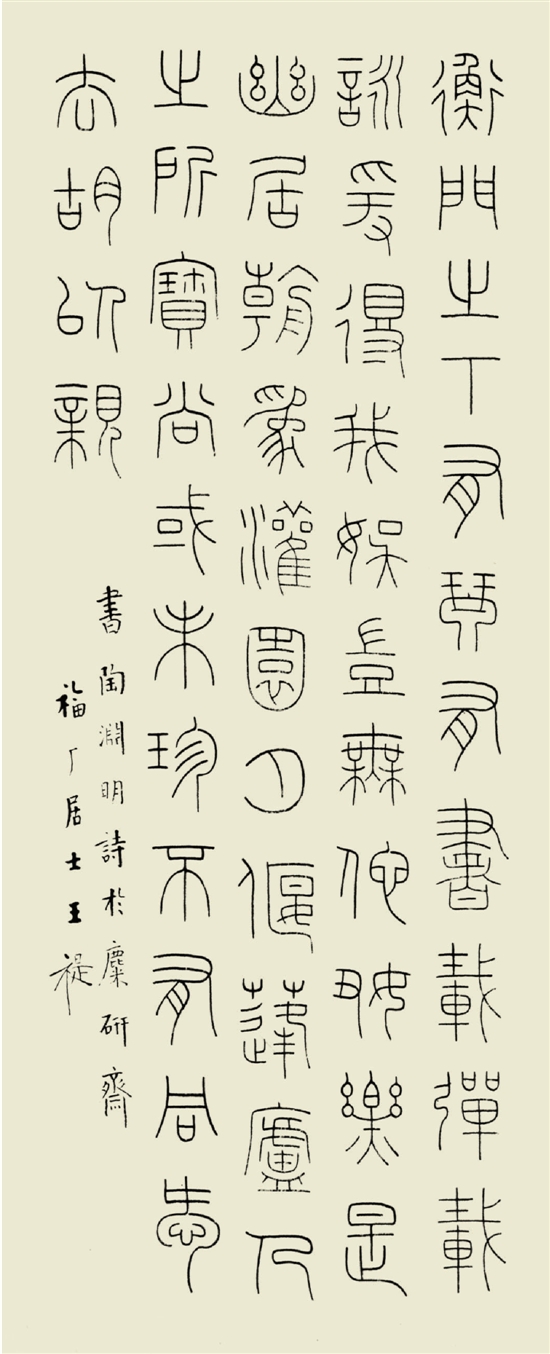 衡門之下有琴有書載彈載
詠爰得我娛豈無佗好樂是
幽居朝為灌園夕偃蓬廬人
之所寶尚或未珍不有同志
去胡以親
書陶淵明詩於麋研齋
福厂居士王禔